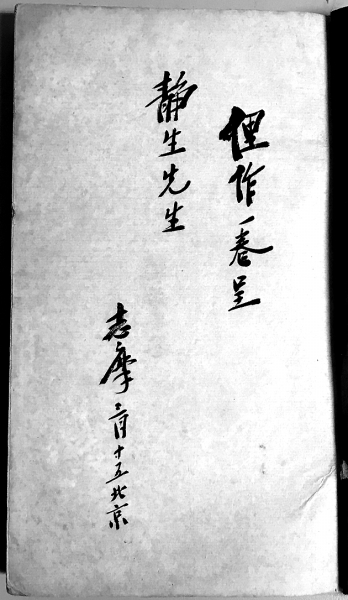 俚作一卷呈
静生先生
志摩 月十五北京